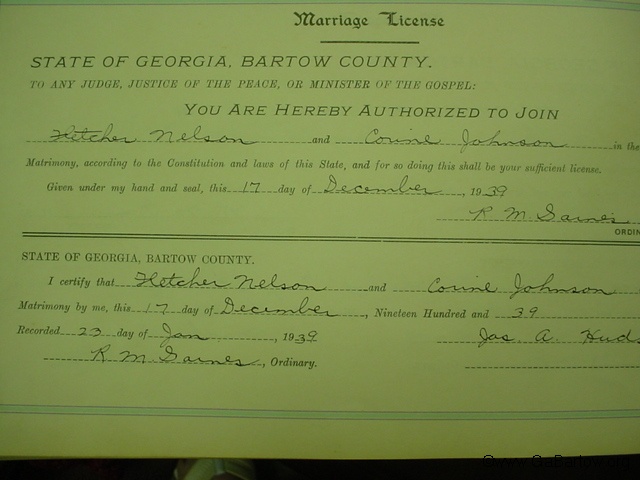 Marriage License
STATE OF GEORGIA, BARTOW COUNTY.
TO ANY JUDGE, JUSTICE OF THE PEACE, OR MINISTER OF THE GOSPEL:
YOU ARE HEREBY AUTHORIZED TO JOIN
Fletcher Nelson and Corine Johnson in the
Matrimony, according to the Constitution and laws of this State, and for so doing this shall be your sufficient license.
Given under my hand and seal, this 17 day of December, 1939
R M Gaines
ORDIN
STATE OF GEORGIA, BARTOW COUNTY.
I certify that Fletcher Nelson and Corine Johnson
Matrimony by me, this 17 day of December, Nineteen Hundred and 39
Recorded 23 day of Jan, 1939 Jas A Huds
R M Gaines, Ordinary.